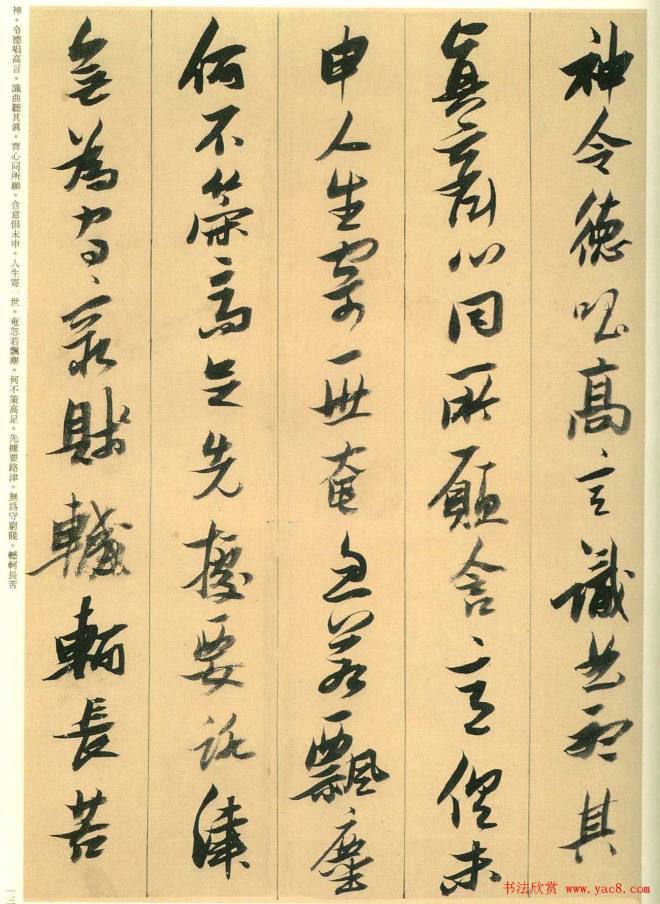 神令德唱高言識曲聽其
真齊心同所願含意俱未
申人生寄一世奄忽若飄塵
何不策高足先據要路津
無為守窮賤轗軻長苦
神。令德唱高言。識曲聽其眞。齊心同所願。含意俱未申。人生寄一世。奄忽若飄塵。何不策高足。先據要路津。無爲守窮賤。轗軻長苦
书法欣赏 www.yac8.com